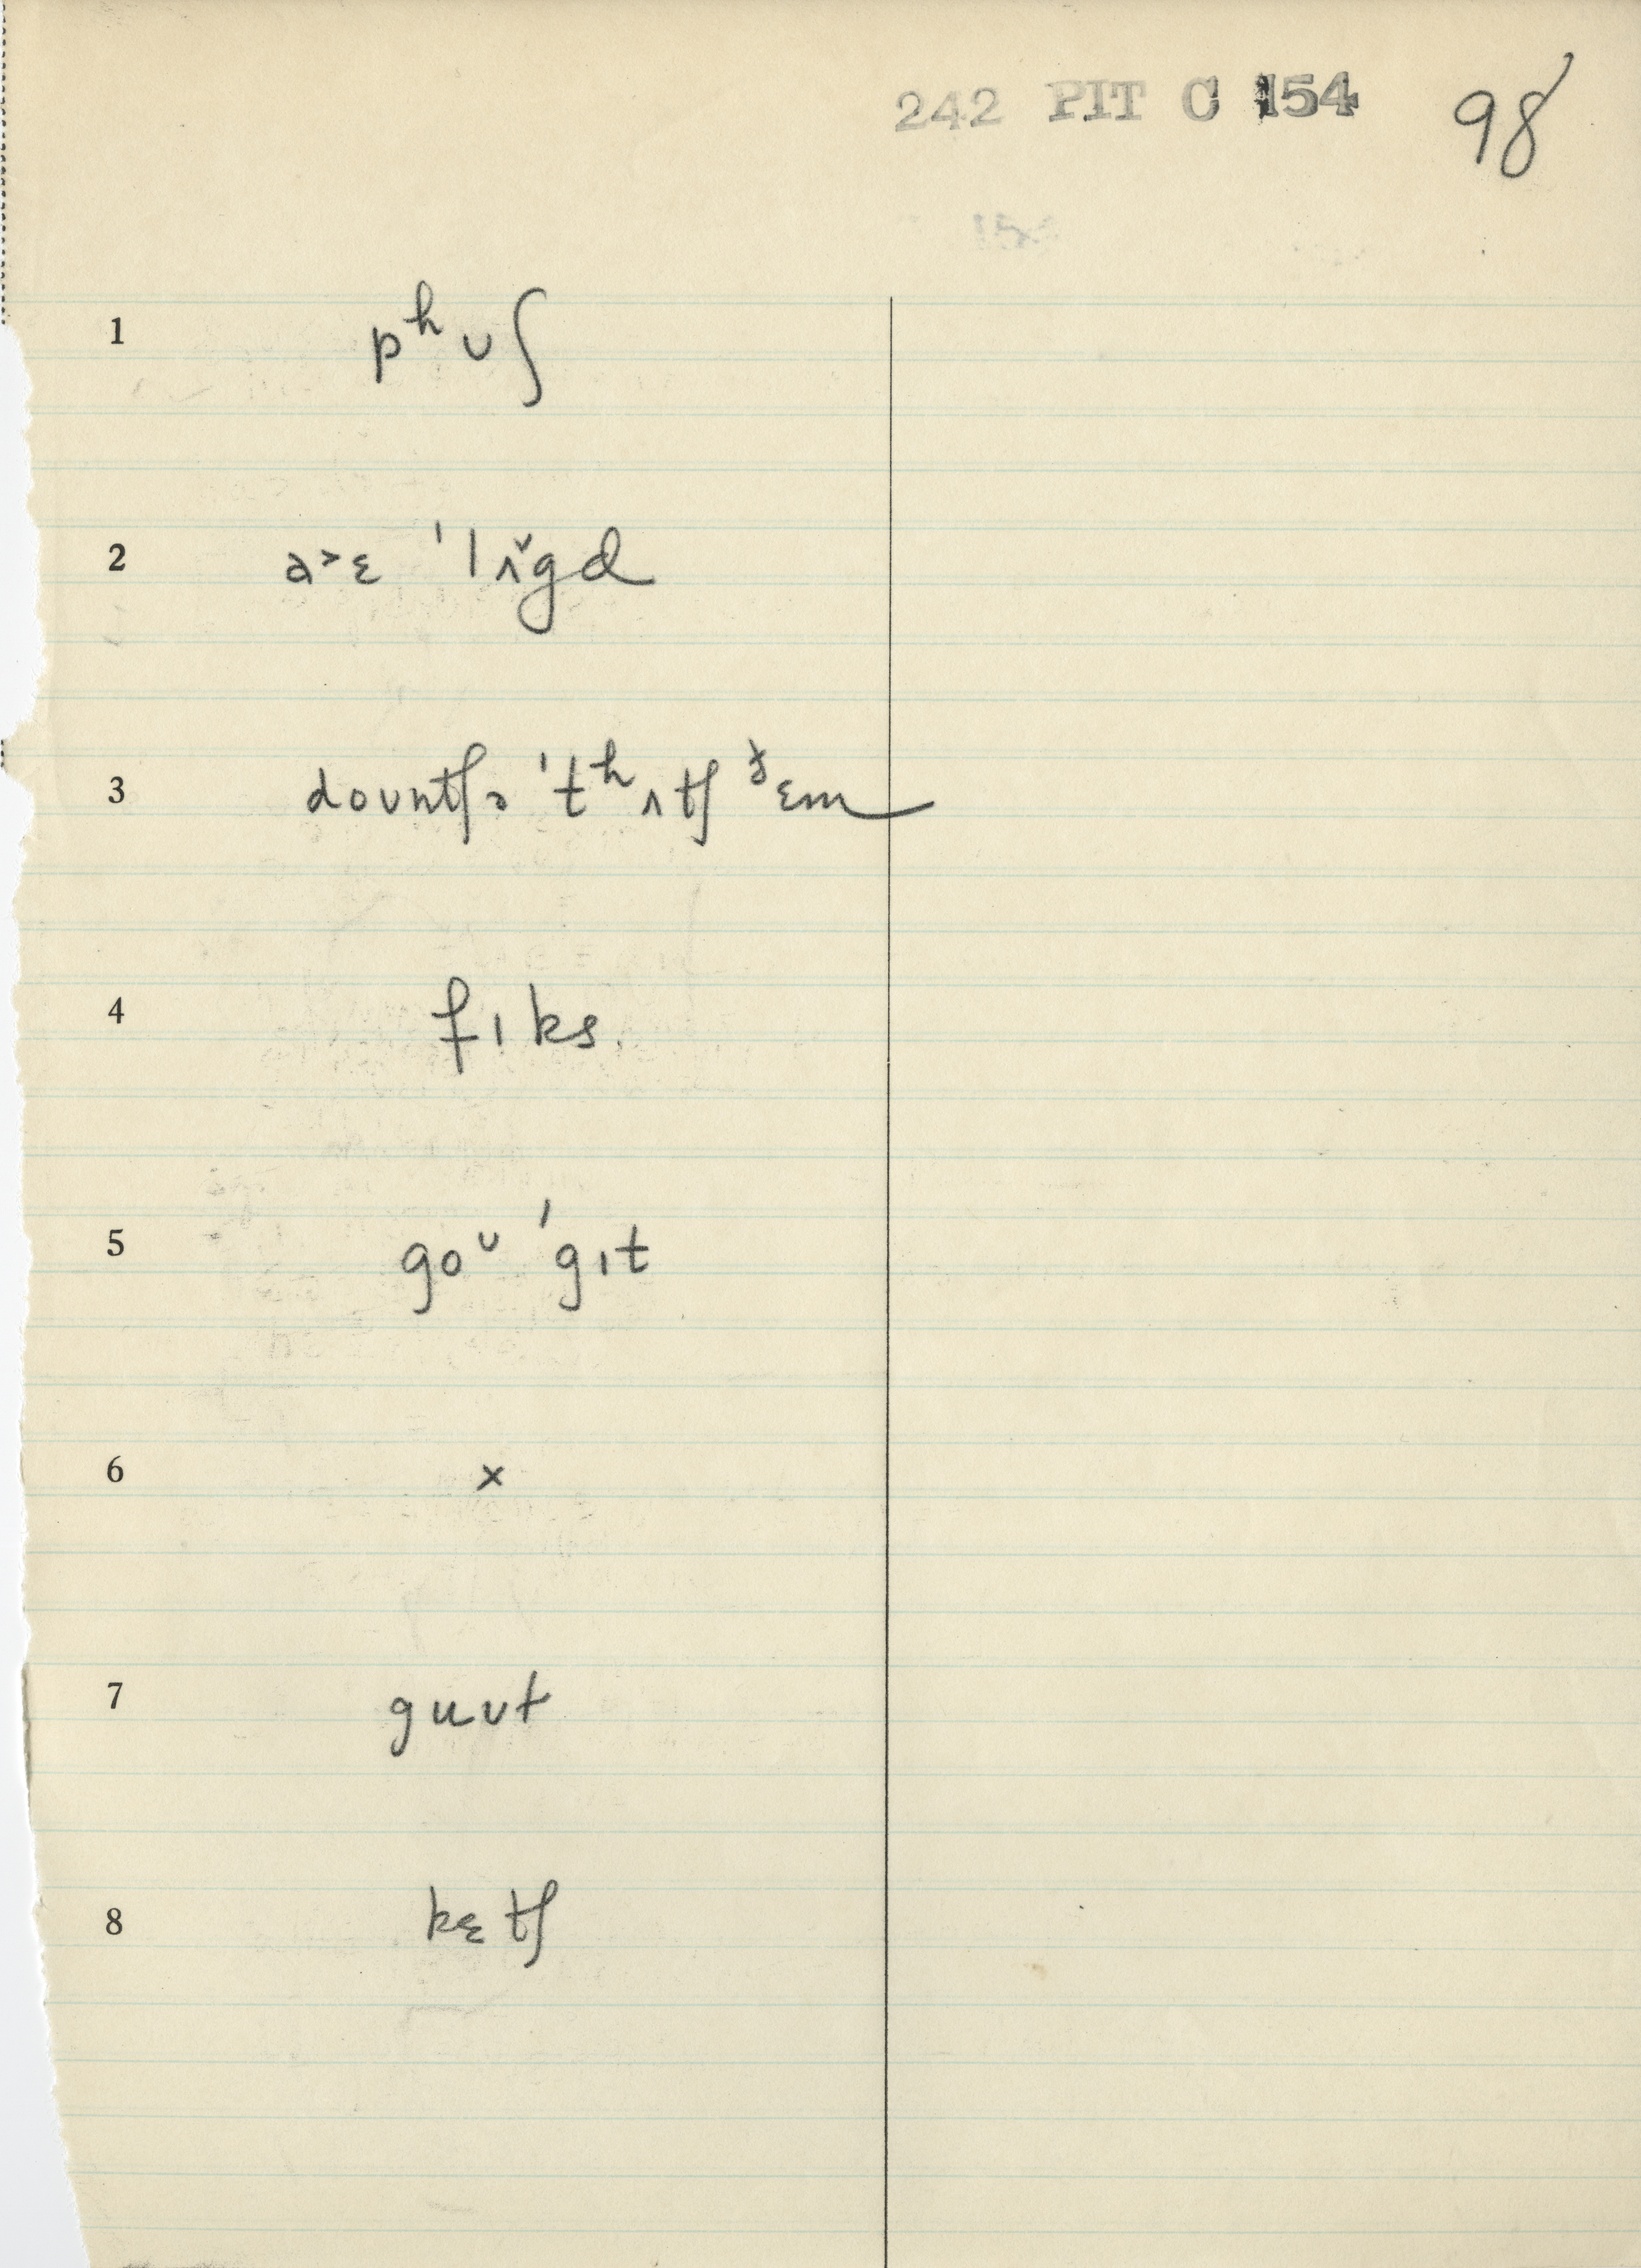 242 PIT C 154 98
1 pʰʊʃ
2 a˃ɛ ˈlʌ̌gd
3 doʊntʃə ˈtʰʌtʃ ᵟɛm
4 fɪks.
5 goᶷ ˈgɪt
6 x
7 guʊt
8 kɛtʃ